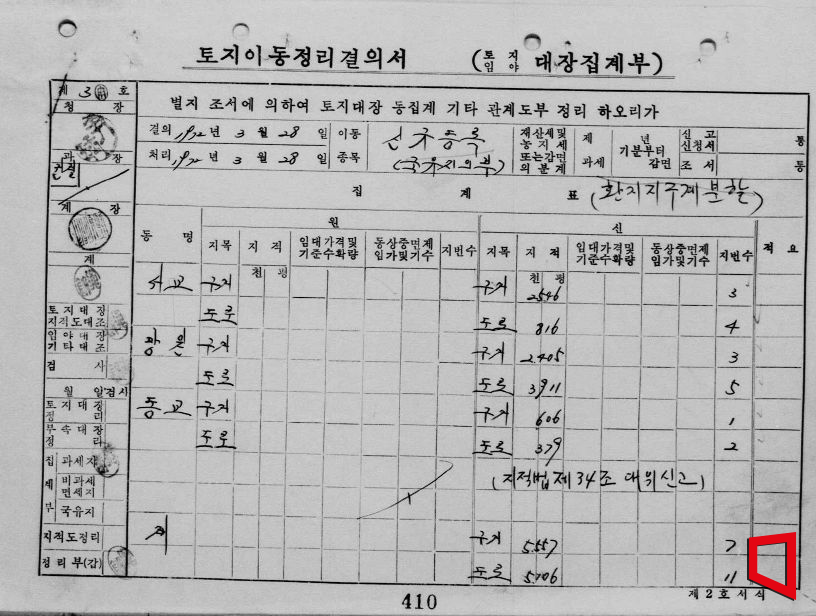 토지이동정리결의서 (토지 임야 대장집계부)
제 3 호
청 장
별지 조서에 의하여 토지대장 동집계 기타 관계도부 정리 하오리가
결의 1972년 3월 28일 이동 신규등록 재산세및 농지세 또는감면 의분계 제 과세 년 기분부터 감면 신고 신청서 통
처리 1972년 3월 28일 종목 (국유지의부) 조서 통
과 장
집 계 표 (환지지구계분할)
계 장
동 명 원 신 적 요
지목 지 적 임대가격및 기준수확량 동상중면제 임가및기수 지번수 지목 지 적 임대가격및 기준수확량 동상중면제 임가및기수 지번수
계
천 평 천 평
서교 구거 구거 2546 3
도로 도로 816 4
토지대장 지적도대조
임야대장 기타대조
광원 구거 구거 2.405 3
검 사
도로 도로 3911 5
월 일 검시
토지대장 정 리
동교 구거 구거 606 1
부속대장 정 리
도로 도로 379 2
집계부 과세지
비과세 면세지
국유지
(지적법 제34조 대위신고)
지적도정리
계 구거 5.557 7
정리부(갑)
도로 5106 11
제2호서식
410